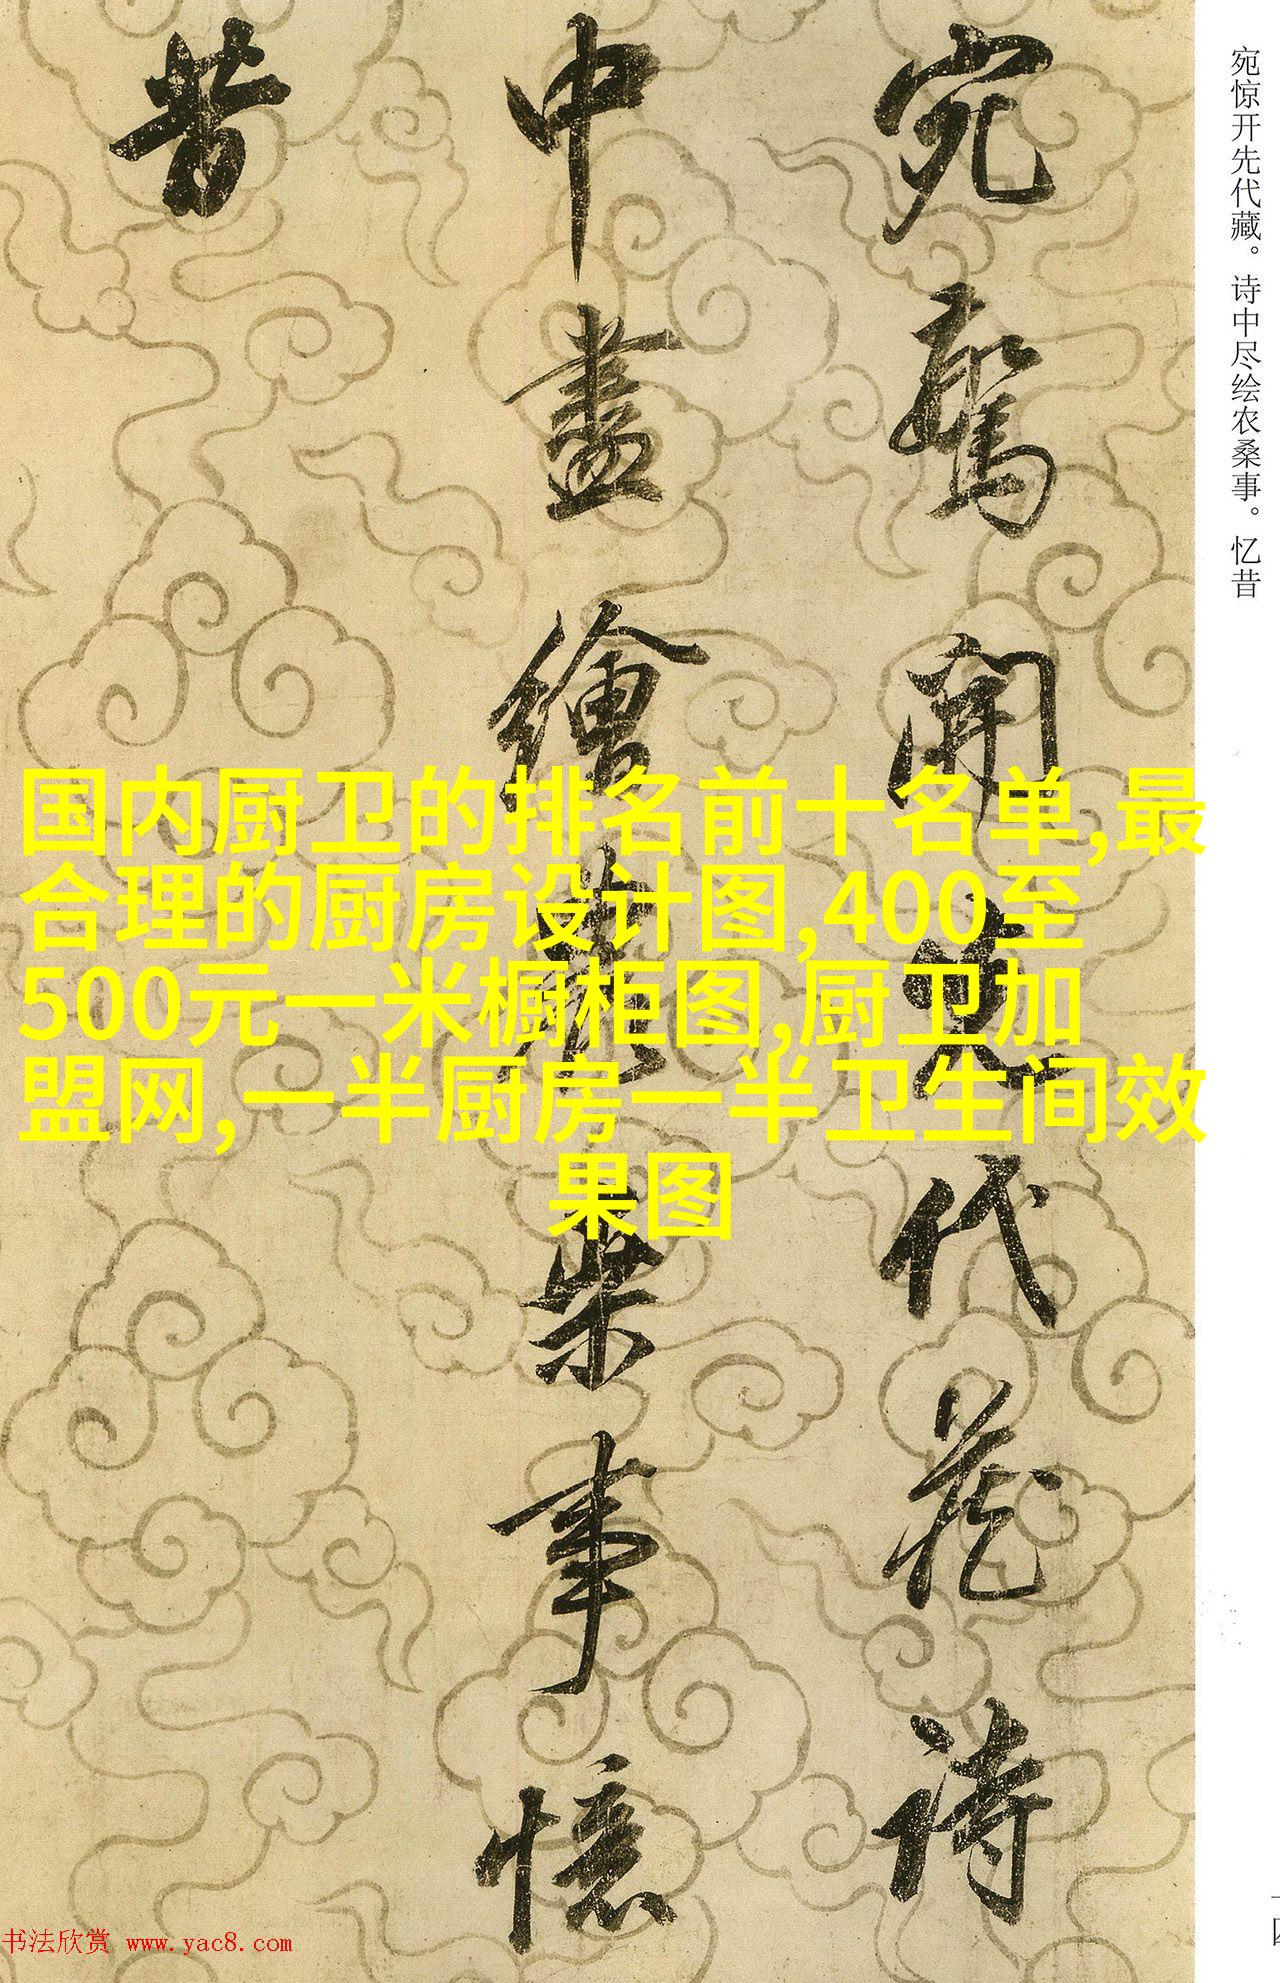 宛驚開先代藏詩
中盡繪農桒事憶
昔
宛惊开先代藏。诗中尽绘农桑事。忆昔
国内厨卫的排名前十名单,最
合理的厨房设计图,400至
500元一米橱柜图,厨卫加
盟网,一半厨房一半卫生间效
果图
书法欣赏 www.yac8.com